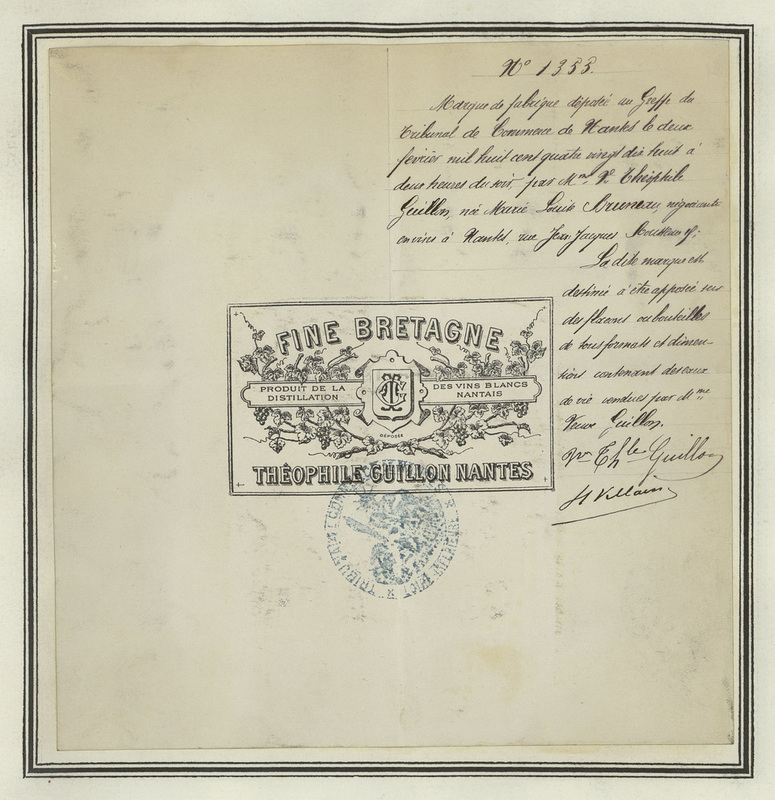 Nº 1355.
Marque de fabrique déposée au Greffe du
Tribunal de Commerce de Nantes le deux
février mil huit cent quatre vingt dix huit à
deux heures du soir, par Mme Ve Théophile
Guillon, née Marie Louise Bruneau, négociante
en vins à Nantes, rue Jean Jacques Rousseau
La dite marque est
destinée à être apposée sur
des flacons ou bouteilles
de tous formats et dimen-
sions contenant des eaux
de vie vendues par Mme
Veuve Guillon.
Vve Thle Guillon
H Villain
FINE BRETAGNE
PRODUIT DE LA
DISTILLATION
DES VINS BLANCS
NANTAIS
DÉPOSÉE
THÉOPHILE GUILLON NANTES